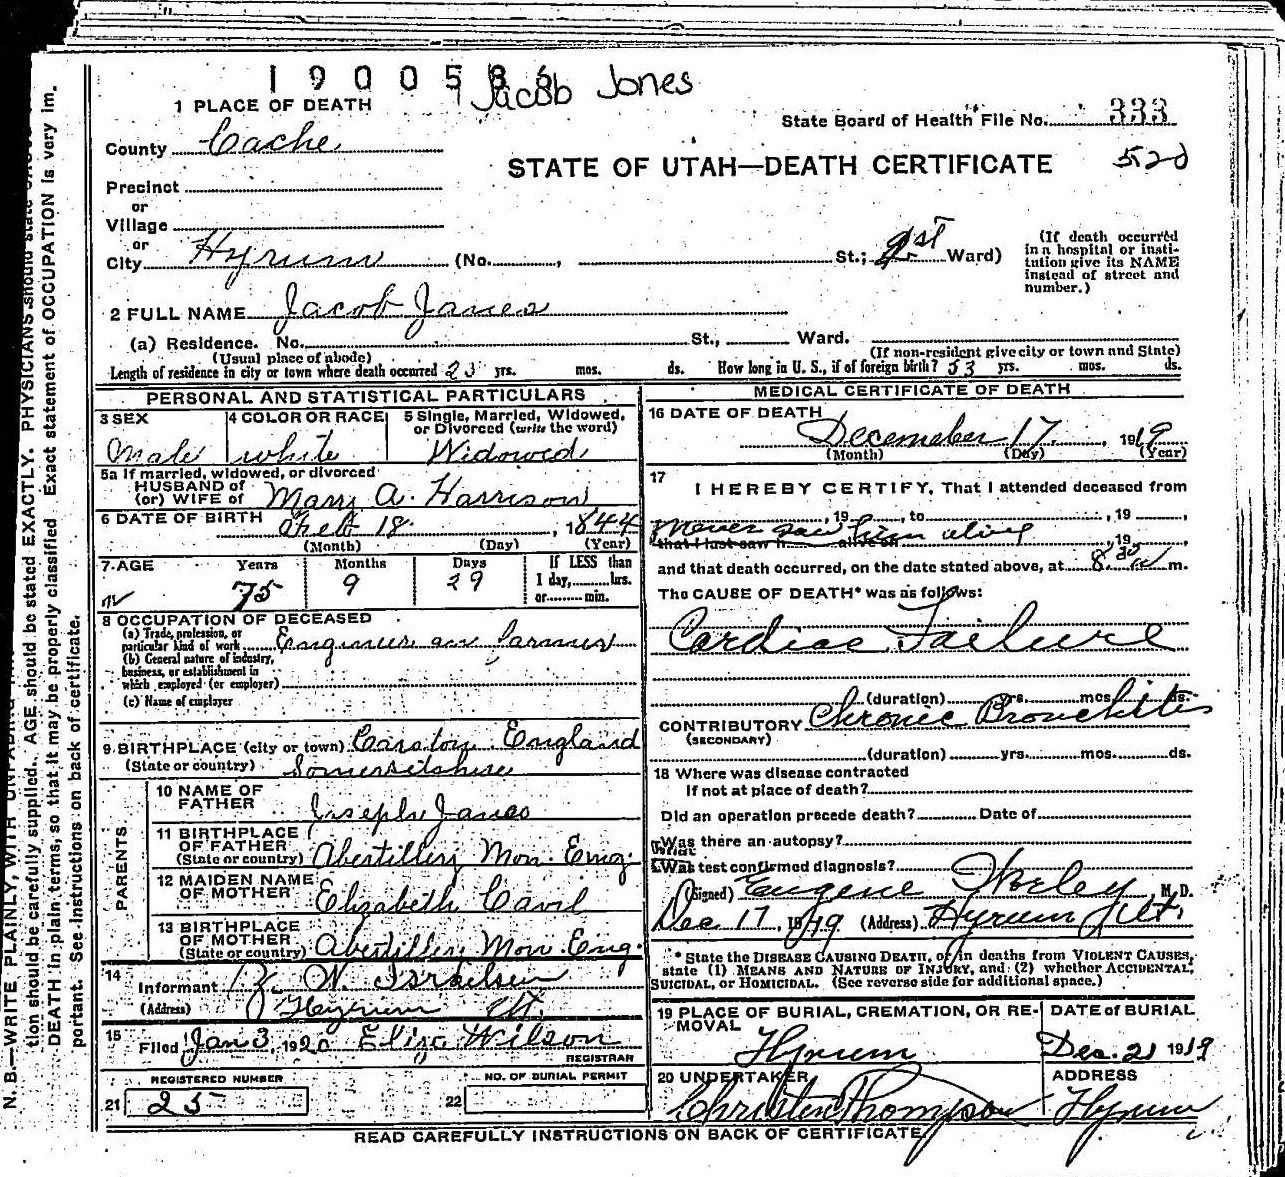 1900586
Jacob Jones
1 PLACE OF DEATH
State Board of Health File No. 333
County Cache
STATE OF UTAH—DEATH CERTIFICATE 520
Precinct
or
Village
or
City Hyrum (No. , St.; 1st Ward)
(If death occurred in a hospital or institution give its NAME instead of street and number.)
2 FULL NAME Jacob Jones
(a) Residence. No. St., Ward.
(Usual place of abode) (If non-resident give city or town and State)
Length of residence in city or town where death occurred 23 yrs. mos. ds. How long in U. S., if of foreign birth? 53 yrs. mos. ds.
PERSONAL AND STATISTICAL PARTICULARS
3 SEX
Male
4 COLOR OR RACE
white
5 Single, Married, Widowed, or Divorced (write the word)
Widowed
5a If married, widowed, or divorced
HUSBAND of
(or) WIFE of Mary A. Harrison
6 DATE OF BIRTH Feb 18 , 1844
(Month) (Day) (Year)
7 AGE Years Months Days If LESS than
75 9 29 1 day, hrs.
or min.
8 OCCUPATION OF DECEASED
(a) Trade, profession, or
particular kind of work Engineer an farmer
(b) General nature of industry,
business, or establishment in
which employed (or employer)
(c) Name of employer
9 BIRTHPLACE (city or town) England
(State or country) Somersetshire
PARENTS
10 NAME OF
FATHER Joseph Jones
11 BIRTHPLACE
OF FATHER
(State or country) Abertillery Mon. Eng.
12 MAIDEN NAME
OF MOTHER Elizabeth Cavil
13 BIRTHPLACE
OF MOTHER
(State or country) Abertillery Mon Eng.
14
Informant W. Israelsen
(Address) Hyrum Ut.
15
Filed Jan 3, 1920 Eliza Wilson
REGISTRAR
REGISTERED NUMBER
21 25
NO. OF BURIAL PERMIT
22
MEDICAL CERTIFICATE OF DEATH
16 DATE OF DEATH
December 17 , 1919
(Month) (Day) (Year)
17
I HEREBY CERTIFY, That I attended deceased from
, 19 , to , 19 ,
never saw him alive
that I last saw h alive on , 19 ,
and that death occurred, on the date stated above, at 8.30 a m.
The CAUSE OF DEATH* was as follows:
Cardiac Failure
(duration) yrs. mos. ds.
CONTRIBUTORY Chronic Bronchitis
(SECONDARY)
(duration) yrs. mos. ds.
18 Where was disease contracted
If not at place of death?
Did an operation precede death? Date of
Was there an autopsy?
What test confirmed diagnosis?
(Signed) Eugene Worley, M. D.
Dec 17, 1919 (Address) Hyrum Ut.
* State the DISEASE CAUSING DEATH, or in deaths from VIOLENT CAUSES,
state (1) MEANS AND NATURE OF INJURY, and (2) whether ACCIDENTAL,
SUICIDAL, or HOMICIDAL. (See reverse side for additional space.)
19 PLACE OF BURIAL, CREMATION, OR RE-
MOVAL
Hyrum
DATE OF BURIAL
Dec. 21 1919
20 UNDERTAKER
Christen Thompson
ADDRESS
Hyrum
READ CAREFULLY INSTRUCTIONS ON BACK OF CERTIFICATE
N. B.—WRITE PLAINLY, WITH
tion should be carefully supplied. AGE should be stated EXACTLY. PHYSICIANS should state
DEATH in plain terms, so that it may be properly classified. Exact statement of OCCUPATION is very im-
portant. See instructions on back of certificate.